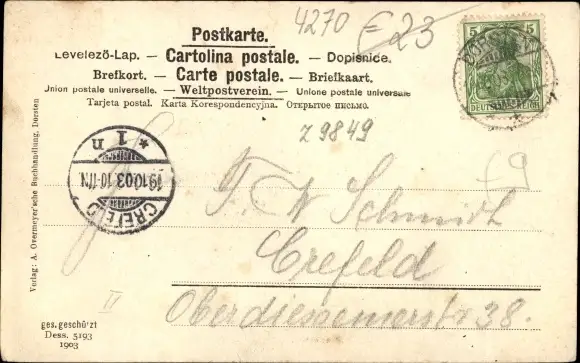 4270
E 23
Postkarte.
Levelező-Lap. — Cartolina postale. — Dopisnice.
Brefkort. — Carte postale. — Briefkaart.
Union postale universelle. — Weltpostverein. — Unione postale universale
Tarjeta postal. Karta Korespondencyjna. Открытое письмо.
5 5
DORSTEN
DEUTSCHES REICH
Z 9849
* 1 n
19.10.03.10-11N.
CREFELD
Verlag: A. Overmeyer'sche Buchhandlung, Dorsten
F. W Schmidt
Crefeld
Oberdiessemerstr 38.
II
ges. geschürzt
Dess. 5193
1903